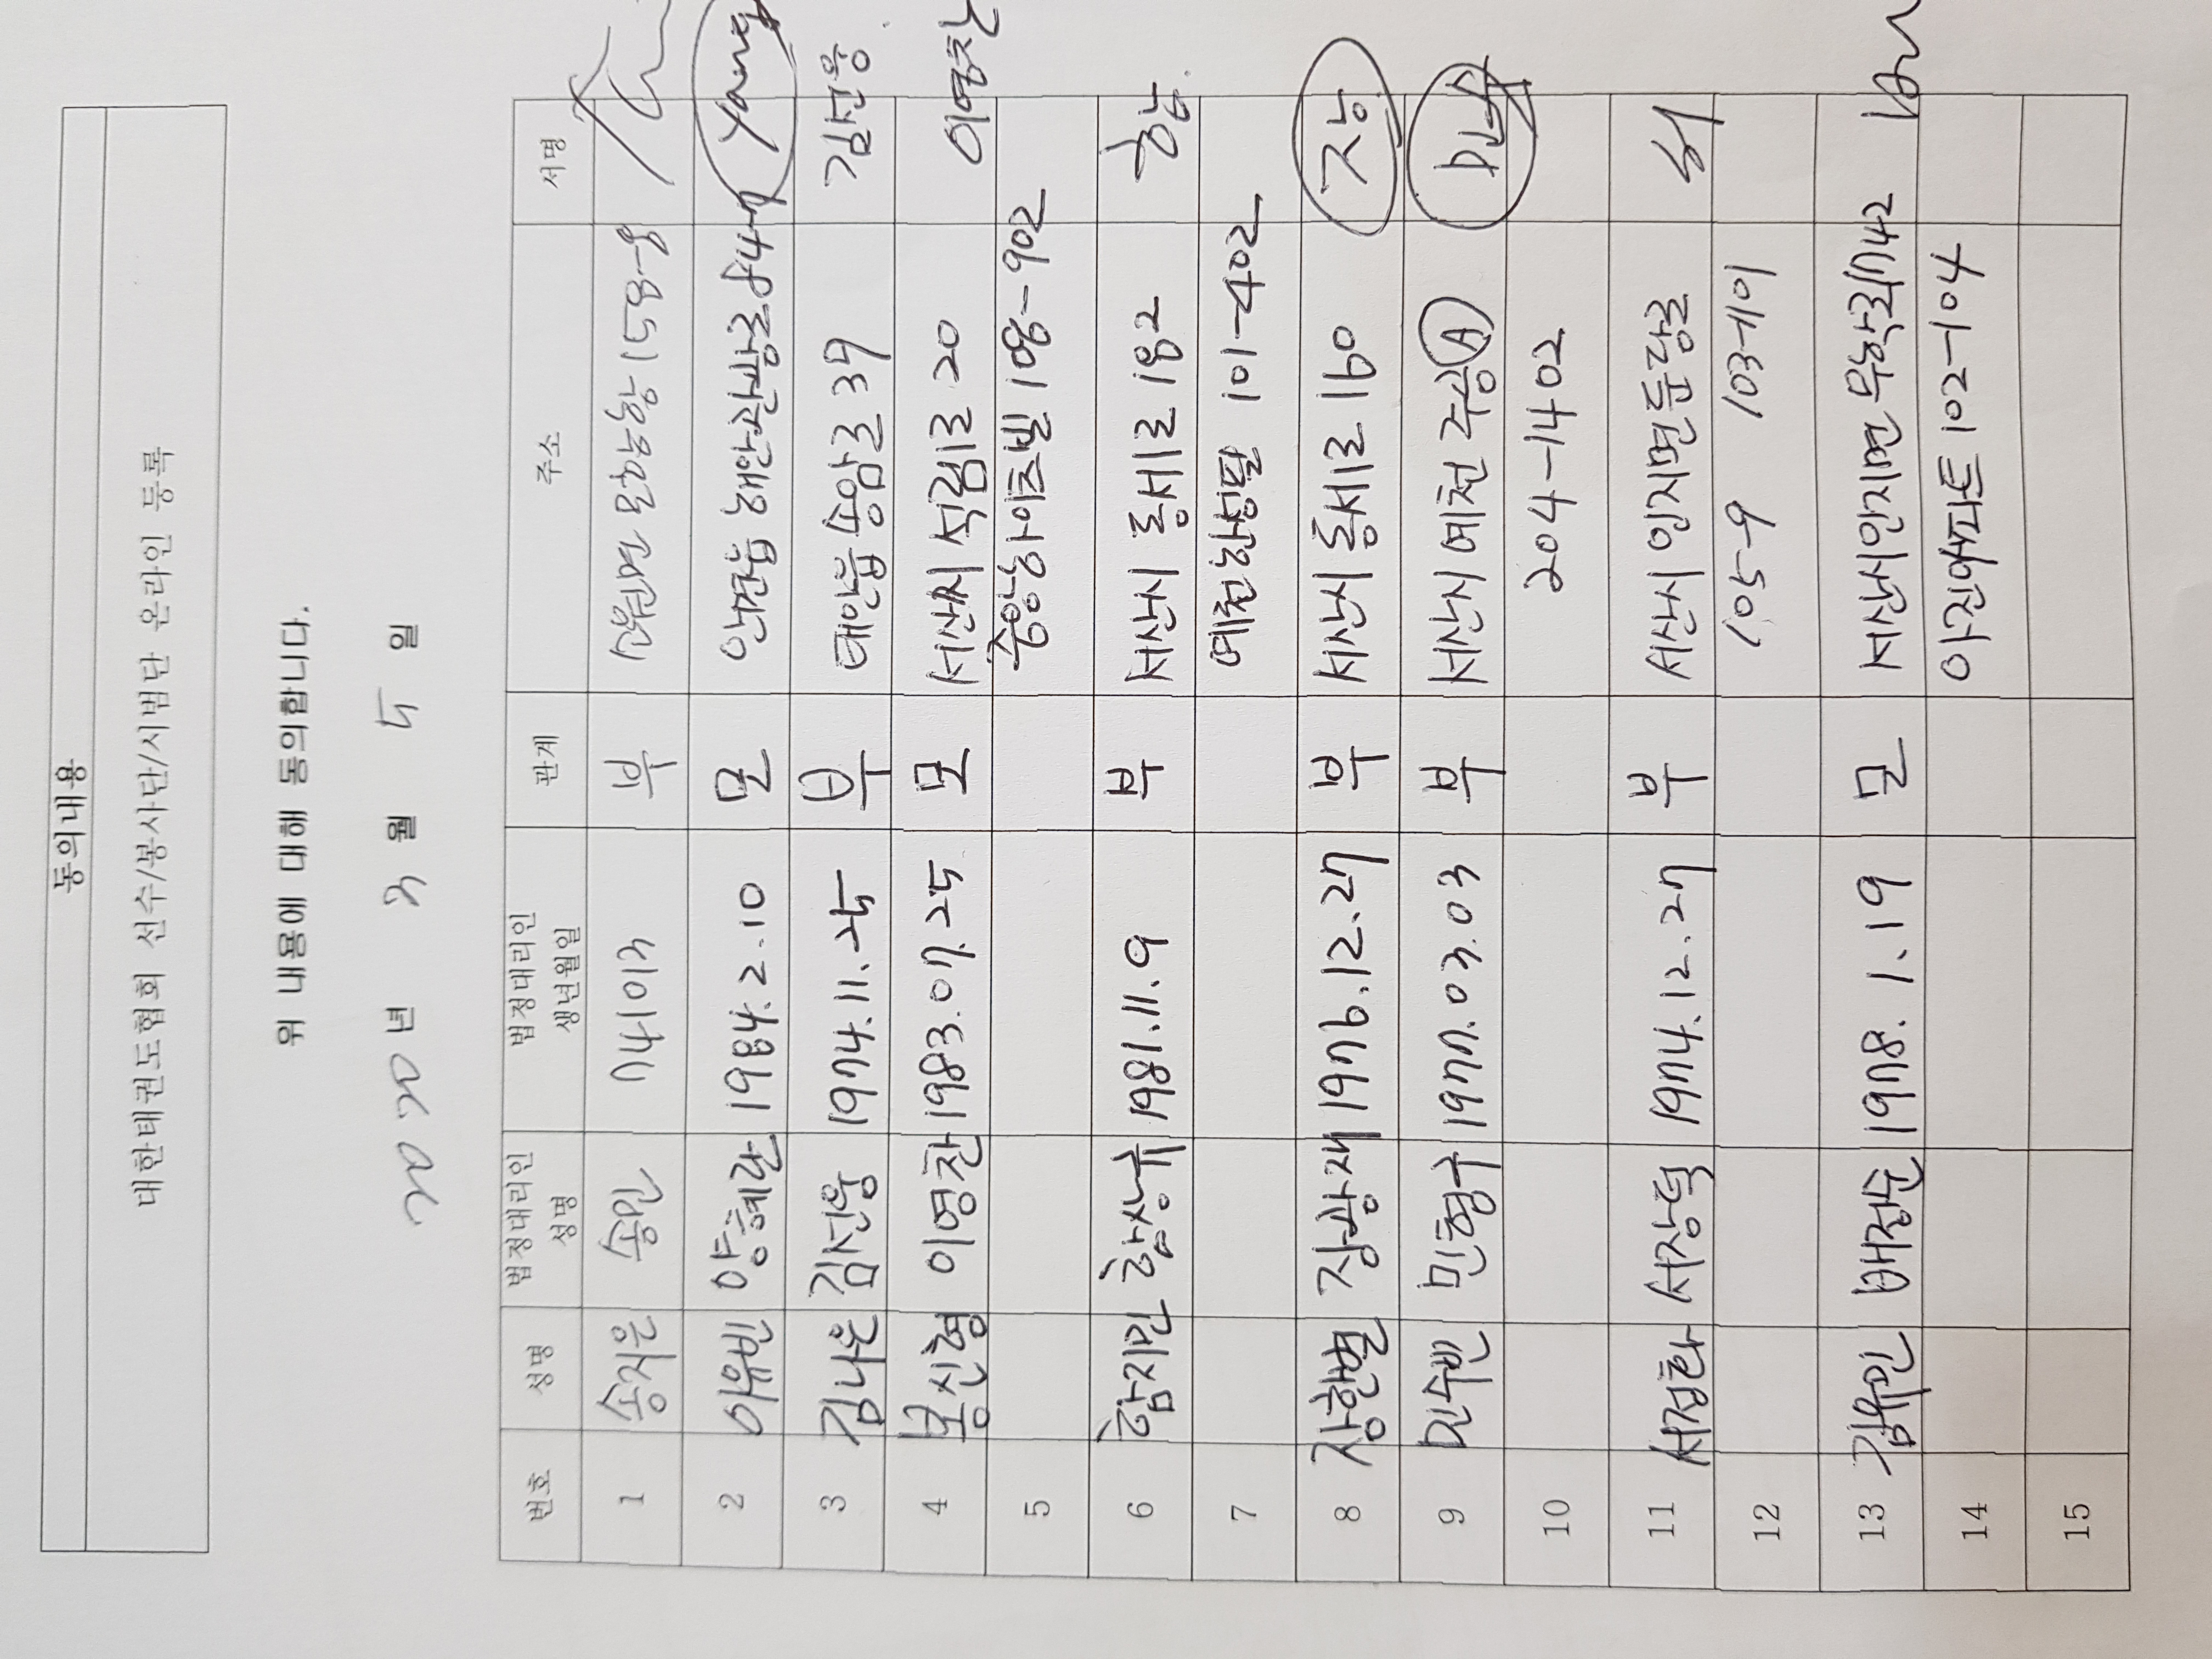 동의내용
대한태권도협회 선수/봉사단/시범단 온라인 등록
위 내용에 대해 동의합니다.
2020년 3월 5일
번호 성명 법정대리인 성명 법정대리인 생년월일 관계 주소 서명
1 송지은 부
2 이유빈 양혜란 1984.2.10 모 Yang
3 김나은 김선웅 1974.11.25 부 태안읍 송암로 39 김선웅
4 이영찬 1983.07.25 모 서산시 석림1로 20 이영찬
5 중앙하이츠빌 108-902
6 함지민 함상규 1981.11.9 부 서산시 동서1로 182 함
7 예천한성필 101-402
8 장한별 장광재 1976.12.27 부 서산시 동서1로 160 장
9 민수빈 민형구 1977.03.03 부 서산시 예천 주공 A
10 204-1402
11 서정화 서장덕 1974.12.27 부 서산시 인지면 둔당로 서
12 105-9
13 김유민 배정순 1978.1.19 모 서산시 인지면 무학로 1742
14 이진아파트 102-104
15